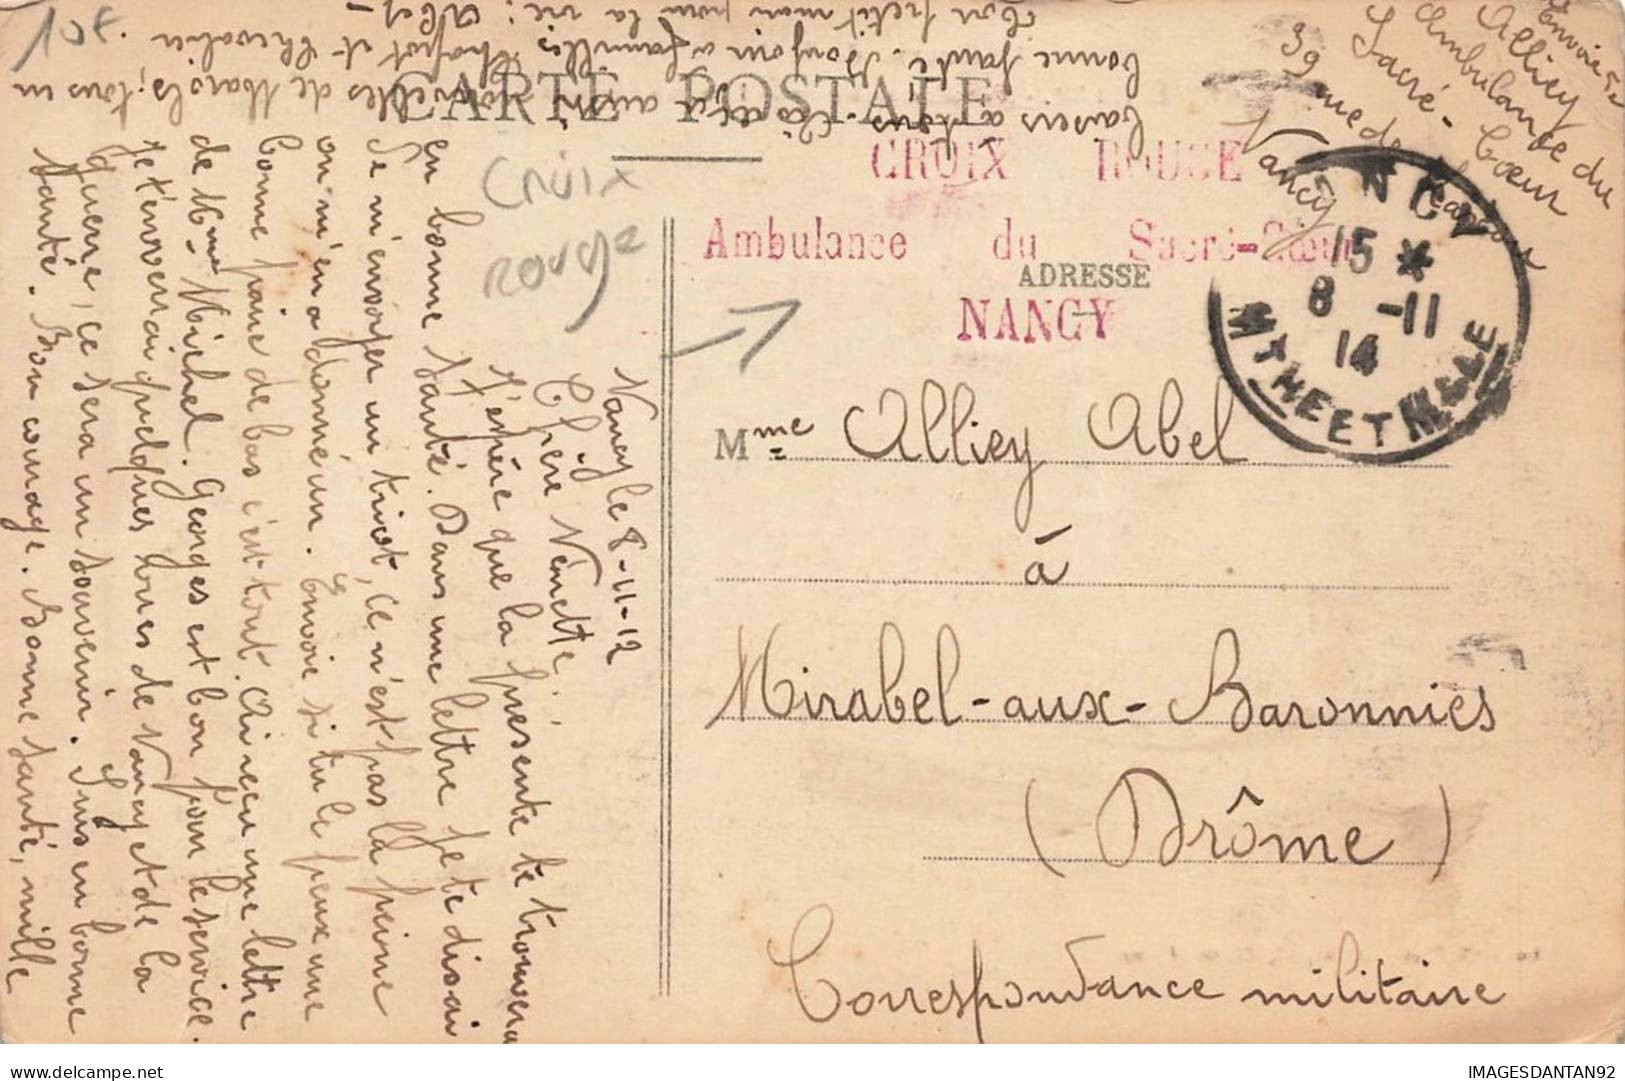 10€
CARTE POSTALE
Croix
rouge
CROIX ROUGE
Ambulance du Sacré-Cœur
NANCY
ADRESSE
NANCY
15 *
8 -11
14
MTHE ET MSLLE
Envoie
Alliey
Ambulance du
Sacré-Cœur
39 rue de
Nancy
Mme Alliey Abel
à
Mirabel-aux-Baronnies
(Drôme)
Correspondance militaire
Nancy le 8-11-12
Chère Venette,
J'espère que la présente te trouvera
en bonne santé. Dans une lettre je te disai
de m'envoyer un tricot, ce n'est pas la peine
on m'en a donné un. Envoie si tu le peux une
bonne paire de bas c'est tout. Ai reçu une lettre
de Mme Michel. Georges est bon pour le service.
Je t'enverrai quelques vues de Nancy et de la
guerre, ce sera un souvenir. Suis en bonne
santé. Bon courage. Bonne santé, mille
baisers à tous. nouvelles de Marols; tous en
bonne santé. Bonjour à familles Chapot et Chevalier.
Ton petit mari pour la vie: Abel
IMAGESDANTAN92